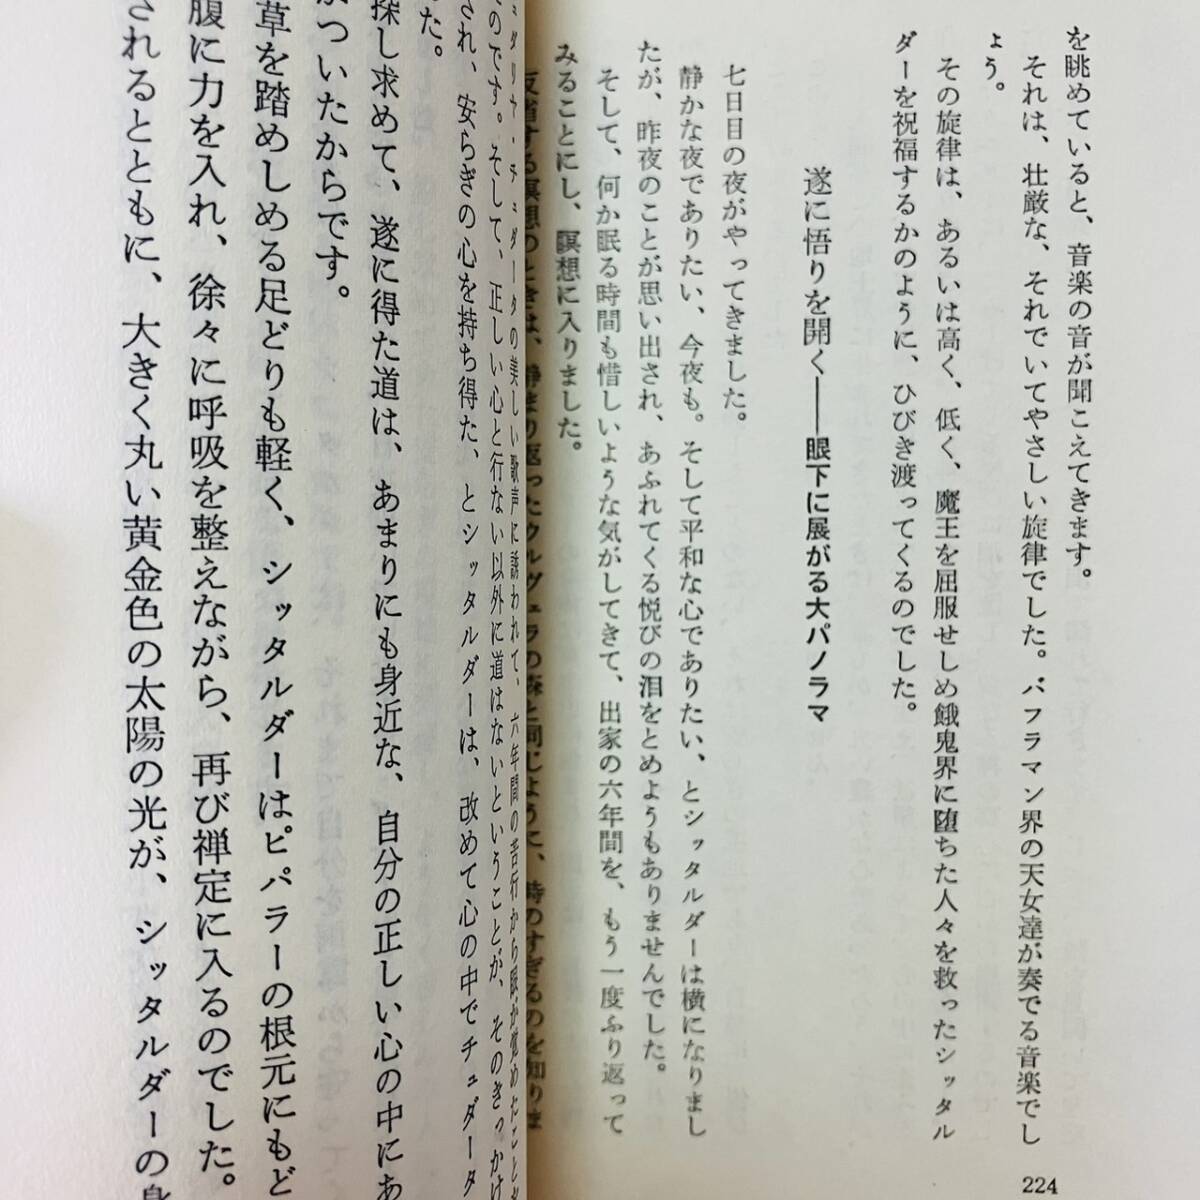 を眺めていると、音楽の音が聞こえてきます。
それは、壮厳な、それでいてやさしい旋律でした。バフラマン界の天女達が奏でる音楽でし
ょう。
その旋律は、あるいは高く、低く、魔王を屈服せしめ餓鬼界に堕ちた人々を救ったシッタル
ダーを祝福するかのように、ひびき渡ってくるのでした。
遂に悟りを開く――眼下に展がる大パノラマ
七日目の夜がやってきました。
静かな夜でありたい、今夜も。そして平和な心でありたい、とシッタルダーは横になりまし
たが、昨夜のことが思い出され、あふれてくる悦びの泪をとめようもありませんでした。
そして、何か眠る時間も惜しいような気がしてきて、出家の六年間を、もう一度ふり返って
みることにし、瞑想に入りました。
反省する瞑想のときは、静まり返ったウルヴェラの森と同じように、時のすぎるのを知りま
224
ュダリヤ・チュダータの美しい歌声に誘われて、六年間の苦行から眼が覚めたこと
のです。そして、正しい心と行ない以外に道はないということが、そのきっかけ
され、安らぎの心を持ち得た、とシッタルダーは、改めて心の中でチュダータ
た。
探し求めて、遂に得た道は、あまりにも身近な、自分の正しい心の中にあ
がついたからです。
草を踏めしめる足どりも軽く、シッタルダーはピパラーの根元にもど
腹に力を入れ、徐々に呼吸を整えながら、再び禅定に入るのでした。
されるとともに、大きく丸い黄金色の太陽の光が、シッタルダーの身